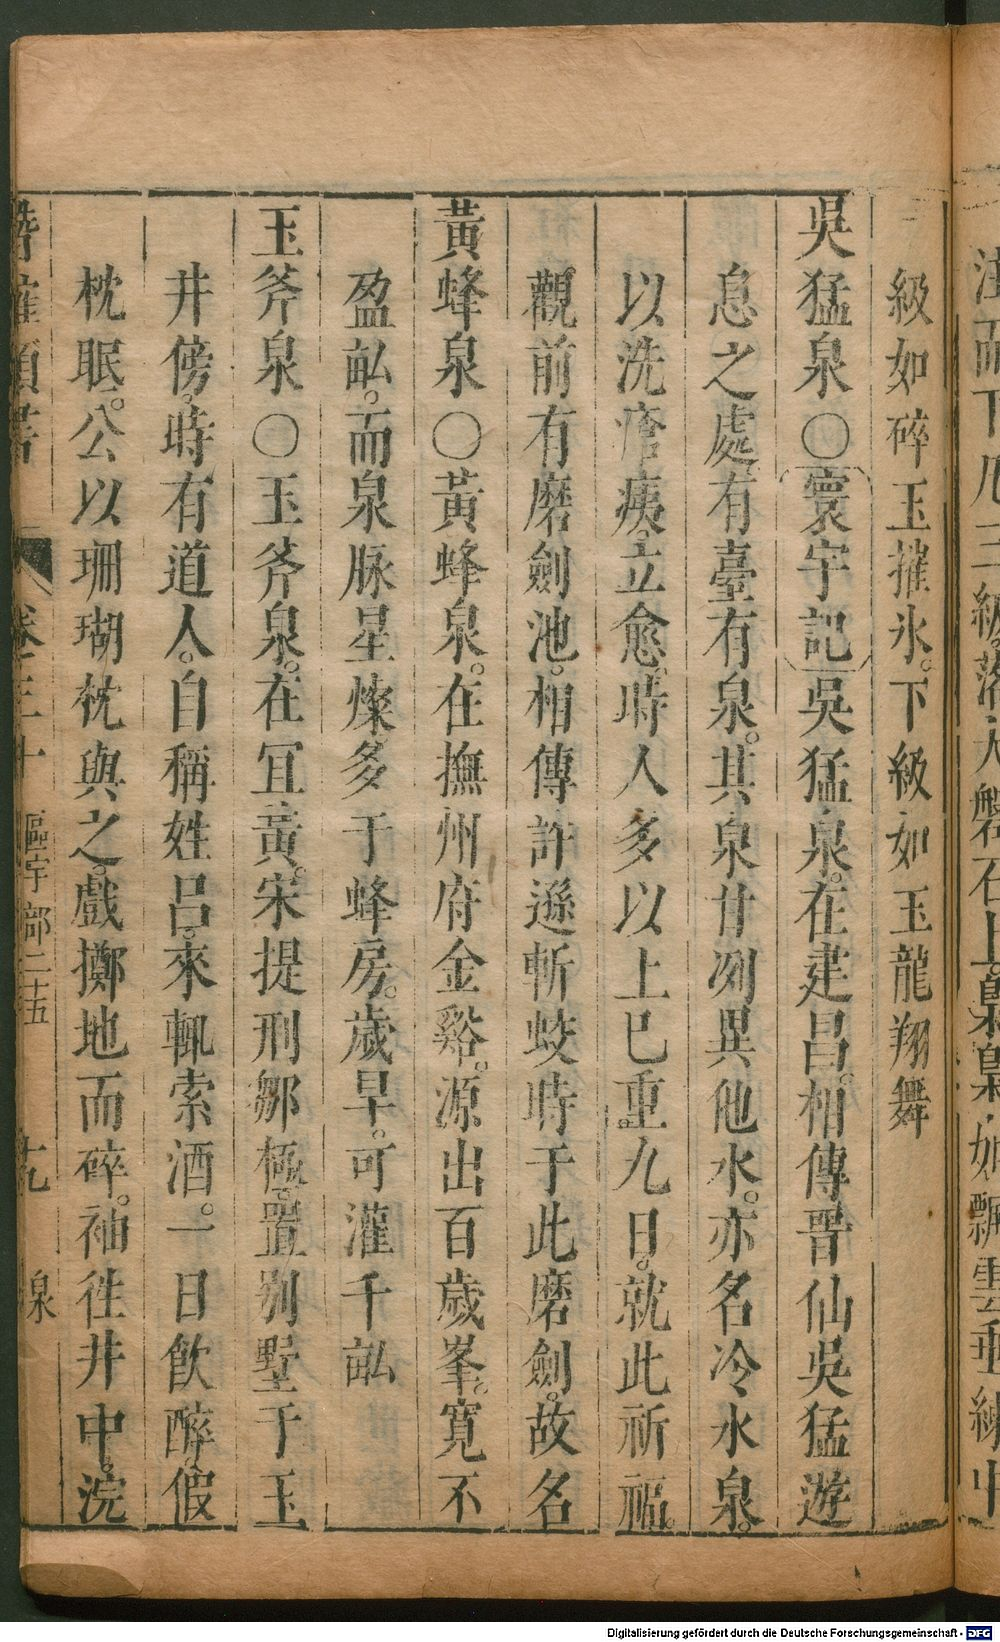 級如碎玉摧氷。下級如玉龍翔舞
吳猛泉〇寰宇記吳猛泉。在建昌。相傳晉仙吳猛遊
息之處。有臺有泉。其泉甘冽異他水。亦名冷水泉。
以洗瘡痍。立愈。時人多以上巳重九日。就此祈福。
觀前有磨劍池。相傳許遜斬蛟時于此磨劍。故名
黃蜂泉〇黃蜂泉。在撫州府金谿。源出百歲峯。寬不
盈畝。而泉脉星燦多于蜂房。歲旱。可灌千畝
玉斧泉〇玉斧泉。在冝黃。宋提刑鄒極。置别墅于玉
井傍。時有道人。自稱姓吕。來輒索酒。一日飲醉。假
枕眠。公以珊瑚枕與之。戲擲地而碎。袖徃井中。浣
潛確類書 卷三十 區宇部二十五 九 泉
Digitalisierung gefördert durch die Deutsche Forschungsgemeinschaft - DFG